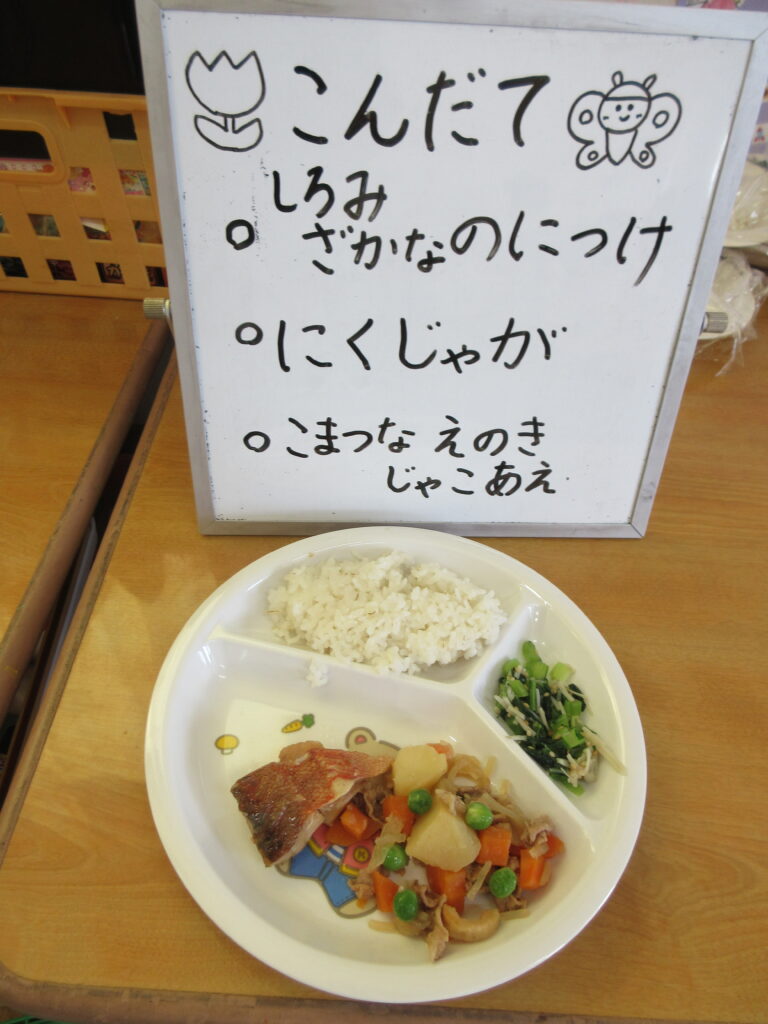 こんだて
○ しろみ
ざかなのにつけ
○ にくじゃが
○ こまつな えのき
じゃこあえ